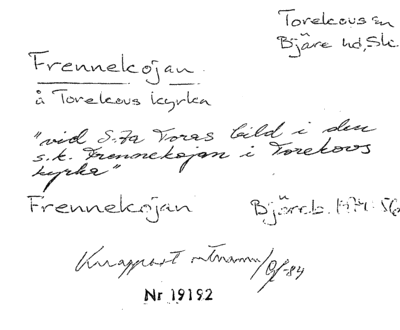 Torekovs sn
Bjäre hd, Sk.
Frennekojan
å Torekovs kyrka
"vid S:ta Toras bild i den
s.k. Frennekojan i Torekovs
kyrka"
Frennekojan Bjäreb. 1974 56
Knappast ortnamn/ -84
Nr 19192